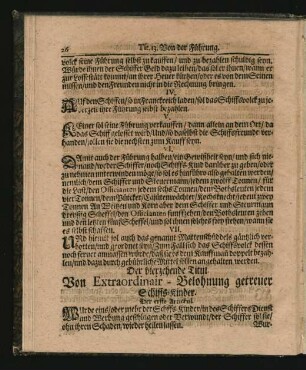 26 Tit. 13. Von der Führung.
volck seine Führung selbst zu kauffen / und zu bezahlen schuldig seyn.
Würde ihnen der Schiffer Geld dazu leihen / das sol er thuen / wann er
zur Losse statt kommt / an ihrer Heuer kürtzen / oder es von dem Seinen
missen / und den Freunden nicht in die Rechnung bringen.
IV.
Auf den Schiffen / so in Franckreich laden / sol das Schiffsvolck zu je-
derzeit ihre Führung selbst bezahlen.
V.
Keiner sol seine Führung verkauffen / dann allein an dem Ort / da
das Schiff gelosset wird / Und so daselbst die Schiffsfreunde ver-
handen / sollen sie die nechsten zum Kauff seyn.
VI.
Damit auch der Führung halben ein Gewißheit seyn / und sich nie-
mand / weder Schiffer noch Schiffs-Kind darüber zu geben / oder
zu nehmen unterwinden müge / so sol es hinführo also gehalten werden /
nemlich / dem Schiffer und Steurmann / jedem zwölff Tonnen / für
die Last / den Officianten jedem sechs Tonnen / den Boßleuten jedem
vier Tonnen / dem Pütcker / Cajütenwächter / und Kochs-Kinde jedem zwey
Tonnen. An Weitzen und Korn aber dem Schiffer und Steurmann
dreissig Scheffel / den Officianten fünffzehen / den Boßleuten zehen
und den letzten fünff Scheffel / und sol ihnen solches frey stehen / wann sie
es selbst schaffen.
VII.
Und hiemit sol auch das genante Mattenschüddels gäntzlich ver-
botten / und geordnet seyn / Denn da gleich das Schiffsvolck dessen
noch ferner anmassen würde / sol sie es dem Kauffmann doppelt bezah-
len / und dazu durch gebührliche Mittel sollen angehalten werden.
Der vierzehende Titul
Von Extraordinair-Belohnung getreuer
Schiffs-Kinder.
Der erste Articul.
Würde eins / oder mehr der Schiffs-Kinder / in des Schiffers Dienst
und Werbung geschlagen oder Verwund / der Schiffer sol sie /
ohn ihren Schaden / wieder heilen lassen.
Wür-